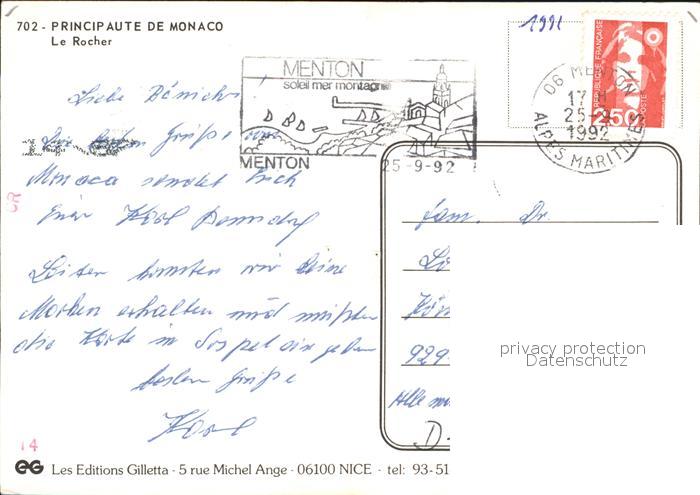 702 - PRINCIPAUTE DE MONACO
Le Rocher
1991
MENTON
soleil mer montagne
MENTON
25-9-92
06 MENTON
17 H
25-9
1992
ALPES MARITIMES
REPUBLIQUE FRANÇAISE
2,50
Liebe
Die besten Grüße aus
Monaco sendet Euch
Euer Karl
Leider konnten wir keine
Marken erhalten und mußten
die Karte in Sospel ein geben
besten Grüße
Karl
Fam. Dr.
929
D-
privacy protection
Datenschutz
14
EG Les Editions Gilletta · 5 rue Michel Ange · 06100 NICE · tel: 93-51